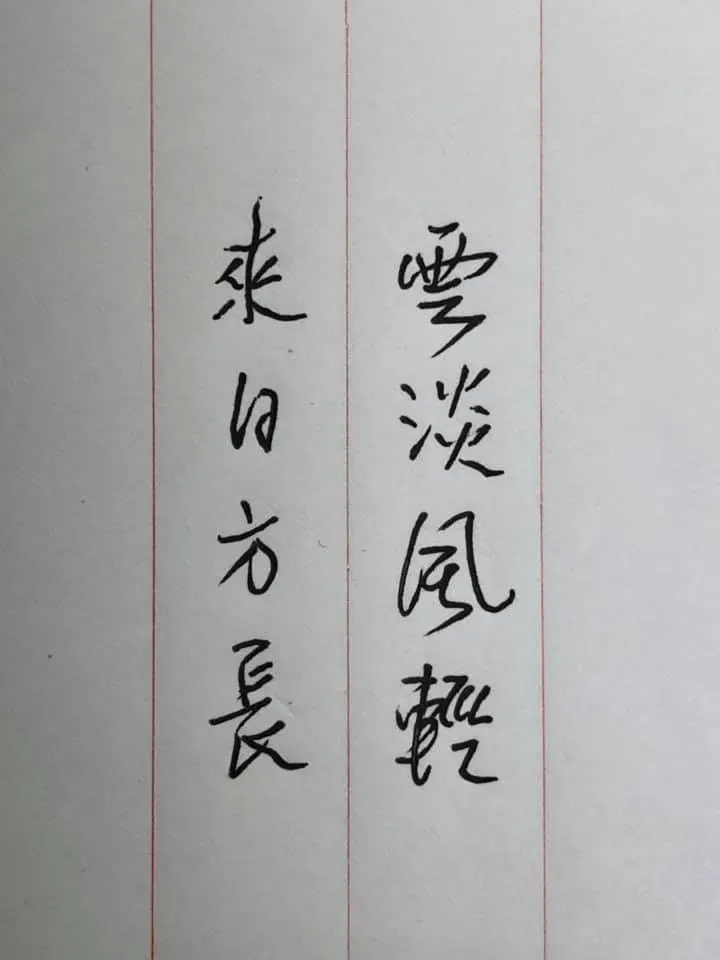 雲淡風輕
來日方長